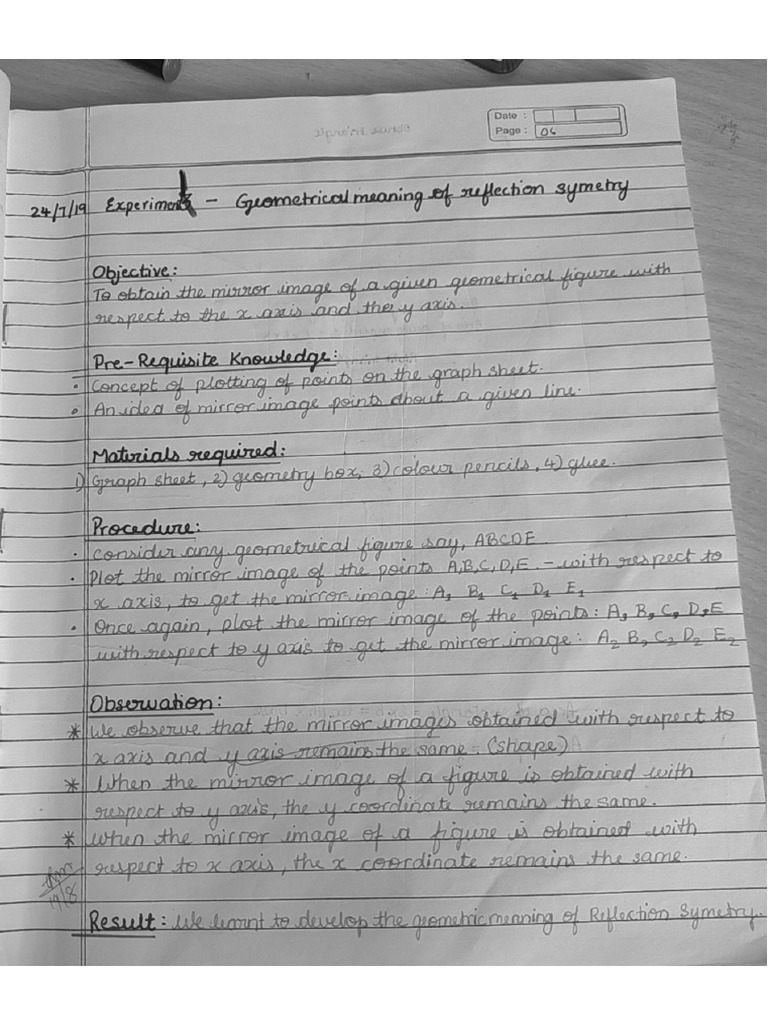 Date :
Page : 06
24/7/19 Experiment - Geometrical meaning of reflection symetry
Objective:
To obtain the mirror image of a given geometrical figure with
respect to the x axis and the y axis.
Pre-Requisite Knowledge:
• Concept of plotting of points on the graph sheet.
• An idea of mirror image points about a given line.
Materials required:
1) Graph sheet, 2) geometry box, 3) colour pencils, 4) glue.
Procedure:
• Consider any geometrical figure say, ABCDE.
• Plot the mirror image of the points A,B,C,D,E - with respect to
x axis, to get the mirror image : A₁ B₁ C₁ D₁ E₁
• Once again, plot the mirror image of the points : A, B, C, D, E
with respect to y axis to get the mirror image : A₂ B₂ C₂ D₂ E₂
Observation:
* We observe that the mirror images obtained with respect to
x axis and y axis remains the same. (shape)
* When the mirror image of a figure is obtained with
respect to y axis, the y coordinate remains the same.
* When the mirror image of a figure is obtained with
respect to x axis, the x coordinate remains the same.
19/8
Result : We learnt to develop the geometric meaning of Reflection Symetry.